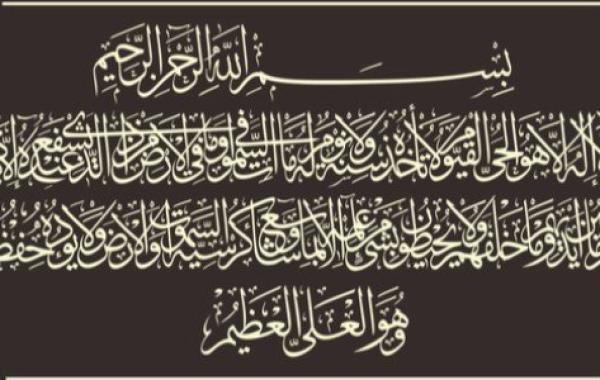 بِسْمِ اللَّهِ الرَّحْمَٰنِ الرَّحِيمِ
لَا إِلَٰهَ إِلَّا هُوَ الْحَيُّ الْقَيُّومُ لَا تَأْخُذُهُ سِنَةٌ وَلَا نَوْمٌ لَهُ مَا فِي السَّمَاوَاتِ وَمَا فِي الْأَرْضِ مَنْ ذَا الَّذِي يَشْفَعُ عِنْدَهُ إِلَّا
مَا بَيْنَ أَيْدِيهِمْ وَمَا خَلْفَهُمْ وَلَا يُحِيطُونَ بِشَيْءٍ مِنْ عِلْمِهِ إِلَّا بِمَا شَاءَ وَسِعَ كُرْسِيُّهُ السَّمَاوَاتِ وَالْأَرْضَ وَلَا يَئُودُهُ حِفْظُ
وَهُوَ الْعَلِيُّ الْعَظِيمُ